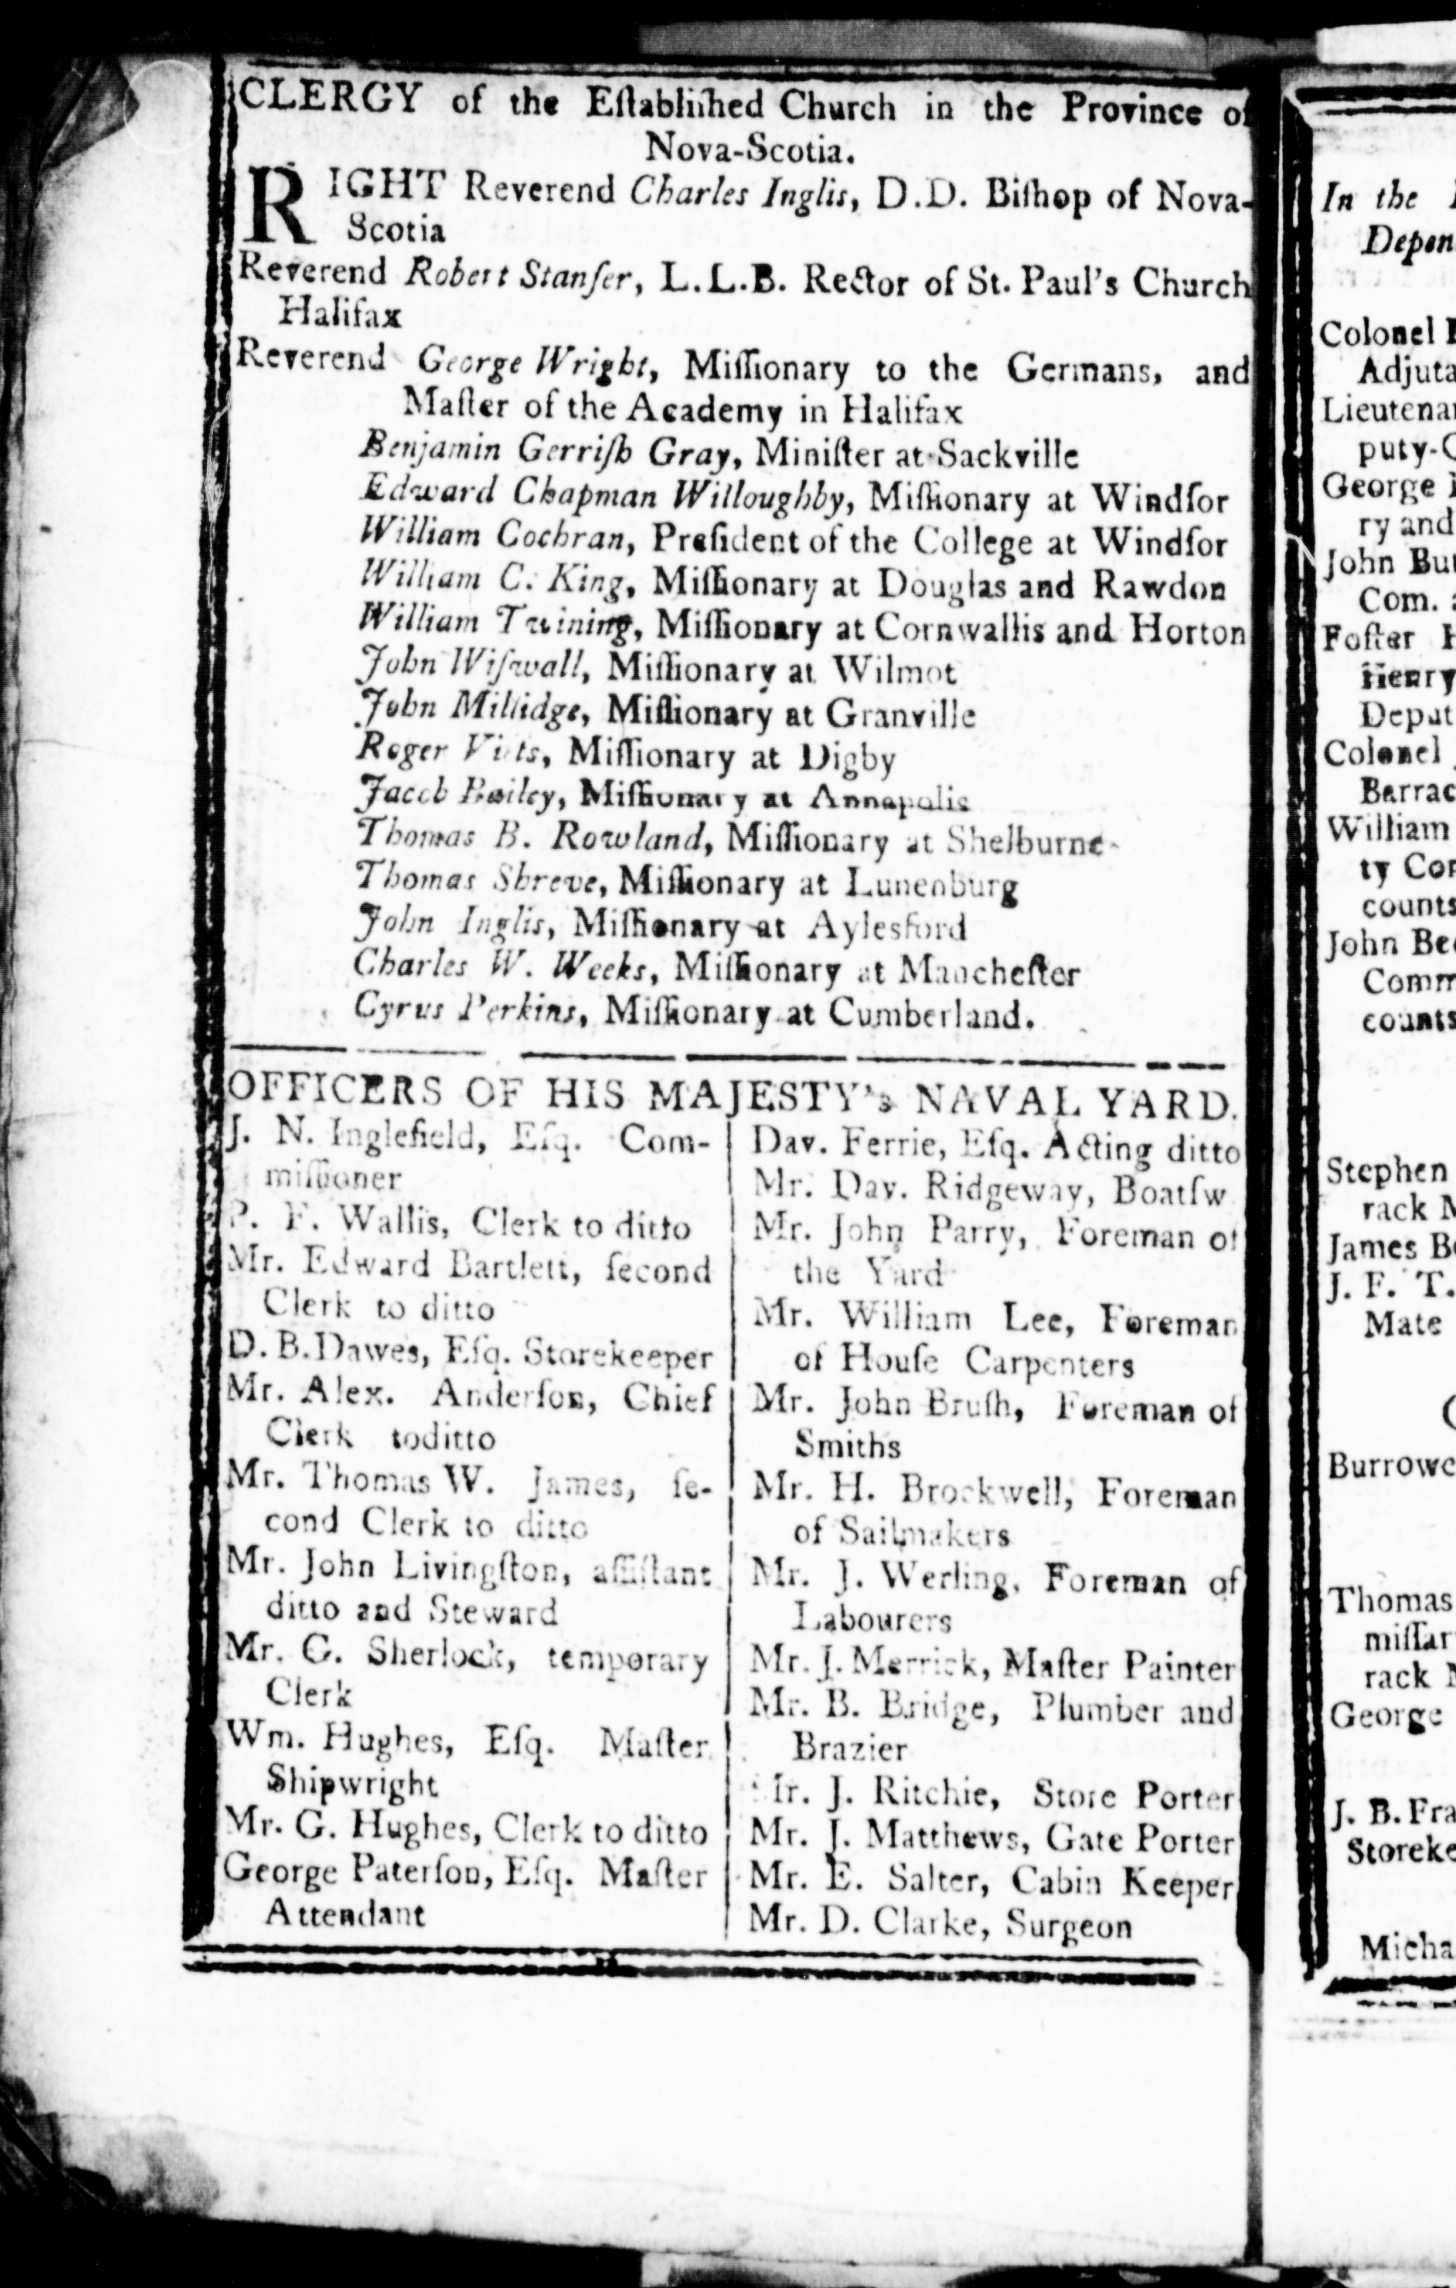 CLERGY of the Eſtabliſhed Church in the Province of
Nova-Scotia.
RIGHT Reverend Charles Inglis, D.D. Biſhop of Nova-
Scotia
Reverend Robert Stanſer, L.L.B. Rector of St. Paul's Church
Halifax
Reverend George Wright, Miſſionary to the Germans, and
Maſter of the Academy in Halifax
Benjamin Gerriſh Gray, Miniſter at Sackville
Edward Chapman Willoughby, Miſſionary at Windſor
William Cochran, Preſident of the College at Windſor
William C. King, Miſſionary at Douglas and Rawdon
William Twining, Miſſionary at Cornwallis and Horton
John Wiſwall, Miſſionary at Wilmot
John Millidge, Miſſionary at Granville
Roger Viets, Miſſionary at Digby
Jacob Bailey, Miſſionary at Annapolis
Thomas B. Rowland, Miſſionary at Shelburne
Thomas Shreve, Miſſionary at Lunenburg
John Inglis, Miſſionary at Aylesford
Charles W. Weeks, Miſſionary at Mancheſter
Cyrus Perkins, Miſſionary at Cumberland.
OFFICERS OF HIS MAJESTY's NAVAL YARD.
J. N. Inglefield, Eſq. Com-
miſſioner
P. F. Wallis, Clerk to ditto
Mr. Edward Bartlett, ſecond
Clerk to ditto
D. B. Dawes, Eſq. Storekeeper
Mr. Alex. Anderſon, Chief
Clerk toditto
Mr. Thomas W. James, ſe-
cond Clerk to ditto
Mr. John Livingſton, aſſiſtant
ditto and Steward
Mr. G. Sherlock, temporary
Clerk
Wm. Hughes, Eſq. Maſter
Shipwright
Mr. G. Hughes, Clerk to ditto
George Paterſon, Eſq. Maſter
Attendant
Dav. Ferrie, Eſq. Acting ditto
Mr. Dav. Ridgeway, Boatſw
Mr. John Parry, Foreman of
the Yard
Mr. William Lee, Foreman
of Houſe Carpenters
Mr. John Bruſh, Foreman of
Smiths
Mr. H. Brockwell, Foreman
of Sailmakers
Mr. J. Werling, Foreman of
Labourers
Mr. J. Merrick, Maſter Painter
Mr. B. Bridge, Plumber and
Brazier
Mr. J. Ritchie, Store Porter
Mr. J. Matthews, Gate Porter
Mr. E. Salter, Cabin Keeper
Mr. D. Clarke, Surgeon
In the
Depen
Colonel
Adjuta
Lieutena
puty-
George
ry and
John Bu
Com.
Foſter
Henry
Deput
Colonel
Barrac
William
ty Co
counts
John Be
Comm
counts
Stephen
rack
James B
J. F. T.
Mate
Burrowe
Thomas
miſſar
rack
George
J. B. Fra
Storeke
Micha